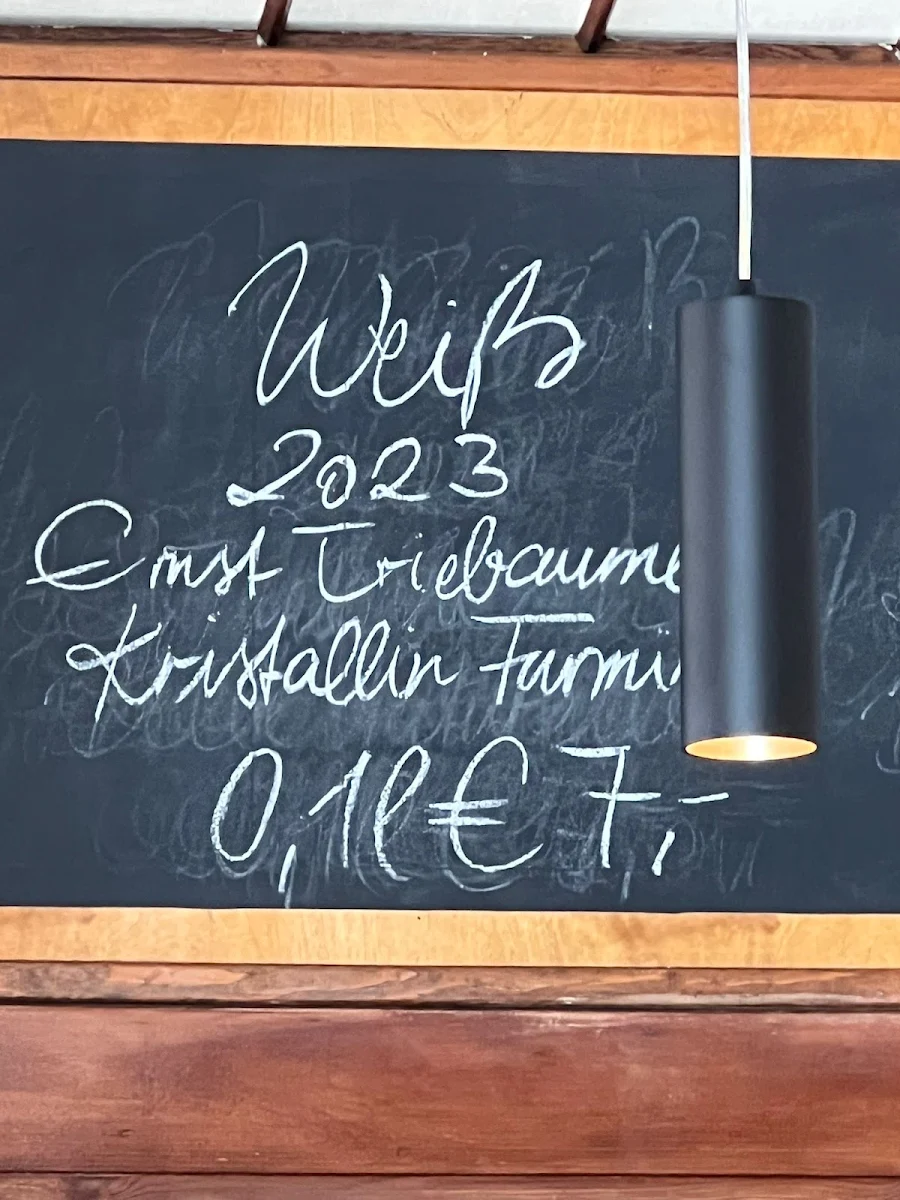 Weiß
2023
Ernst Triebaume
Kristallin Furmi
0,1l € 7,-